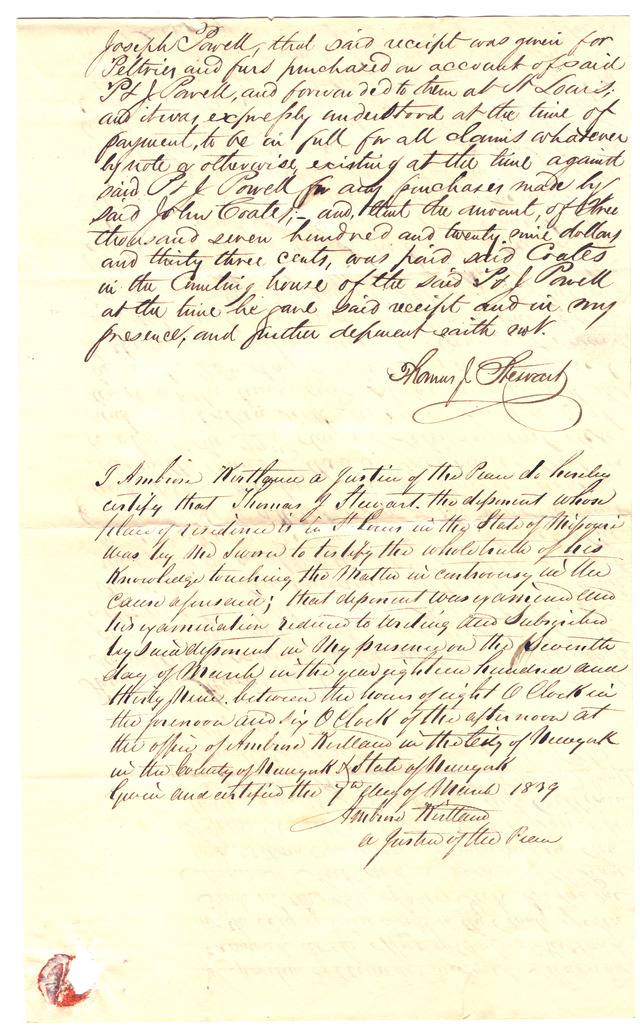 Joseph Powell, that said receipt was given for
Peltries and furs purchased on account of said
P & J. Powell, and forwarded to them at St Louis;
and it was, expressly understood at the time of
payment, to be in full for all claims whatever
by note or otherwise, existing at the time against
said P & J Powell for any purchases made by
said John Coates;- and, that the amount, of three
thousand seven hundred and twenty nine dollars
and thirty three cents, was paid said Coates
in the Counting house of the said P & J Powell
at the time he gave said receipt and in my
presence, and further deponent saith not.
Thomas J. Stewart
I Ambrose Kirtland a Justice of the Peace do hereby
certify that Thomas J Stewart. the deponent whose
place of residence is in St Louis in the State of Missouri
was by me sworn to testify the whole truth of his
Knowledge touching the Matter in controversy in the
cause aforesaid; that deponent was examined and
his examination reduced to writing and Subscribed
by said deponent in my presence on the Seventh
day of March in the year eighteen hundred and
thirty Nine. between the hours of eight O Clock in
the forenoon and Six O Clock of the afternoon at
the office of Ambrose Kirtland in the City of Newyork
in the County of Newyork & State of Newyork
Given and certified the 7th day of March 1839
Ambrose Kirtland
a Justice of the Peace